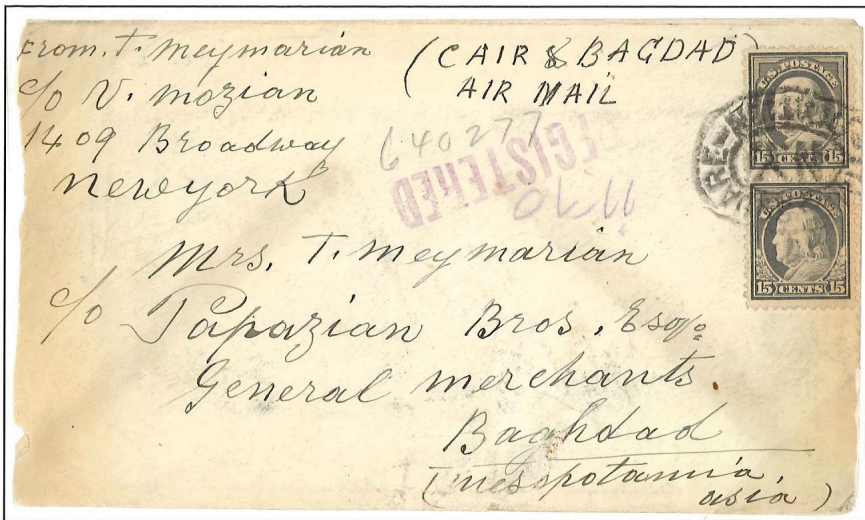 From. T. Meymarian
c/o V. Mozian
1409 Broadway
New york
(CAIR & BAGDAD)
AIR MAIL
640277
REGISTERED
U.S. POSTAGE
15 CENTS 15
U.S. POSTAGE
15 CENTS 15
Mrs. T. Meymarian
c/o Papazian Bros. Esqo
General merchants.
Baghdad
(Messpotamia,
asia)